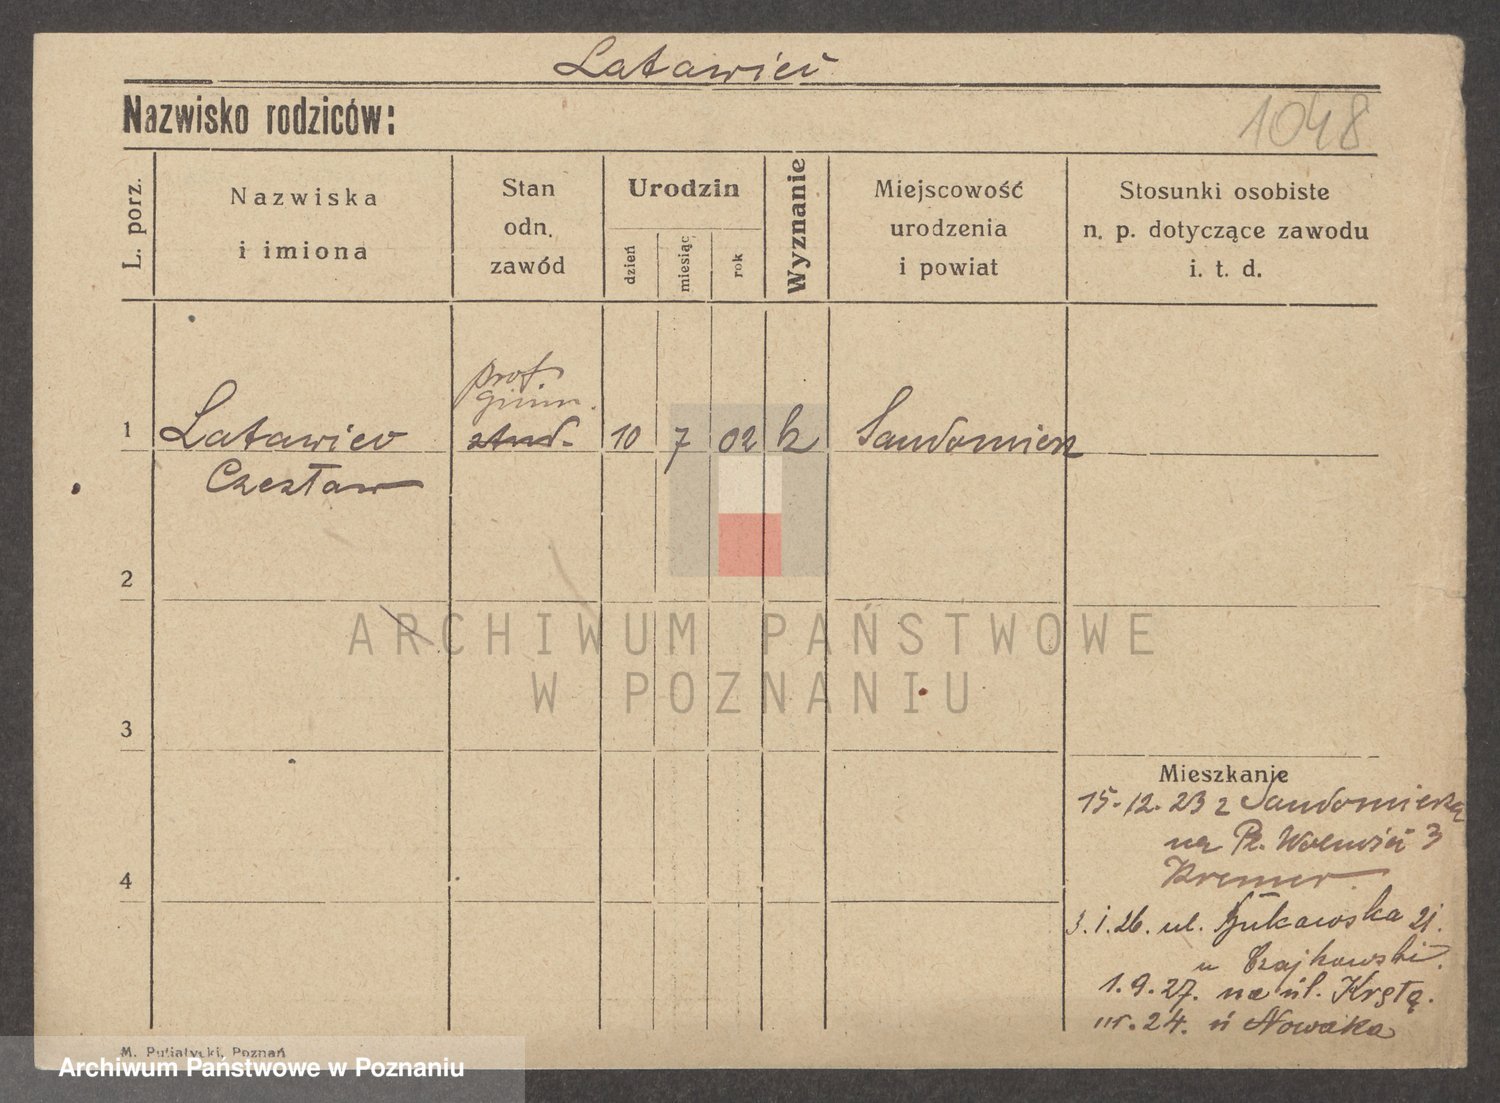 Latawiec
Nazwisko rodziców:
1048
L. porz.
Nazwiska
i imiona
Stan
odn.
zawód
Urodzin
dzień
miesiąc
rok
Wyznanie
Miejscowość
urodzenia
i powiat
Stosunki osobiste
n. p. dotyczące zawodu
i. t. d.
prof
gimn.
1 Latawiec stud. 10 7 02 k Sandomierz
Czesław
2
ARCHIWUM PAŃSTWOWE
W POZNANIU
3
Mieszkanie
15.12.23 z Sandomierza
na Pl. Wolności 3
Kremer
4
3.1.26. ul. Bukowska 21.
u Czajkowski.
1.9.27. na ul. Krętą.
nr. 24. u Nowaka
M. Putiatycki, Poznań
Archiwum Państwowe w Poznaniu